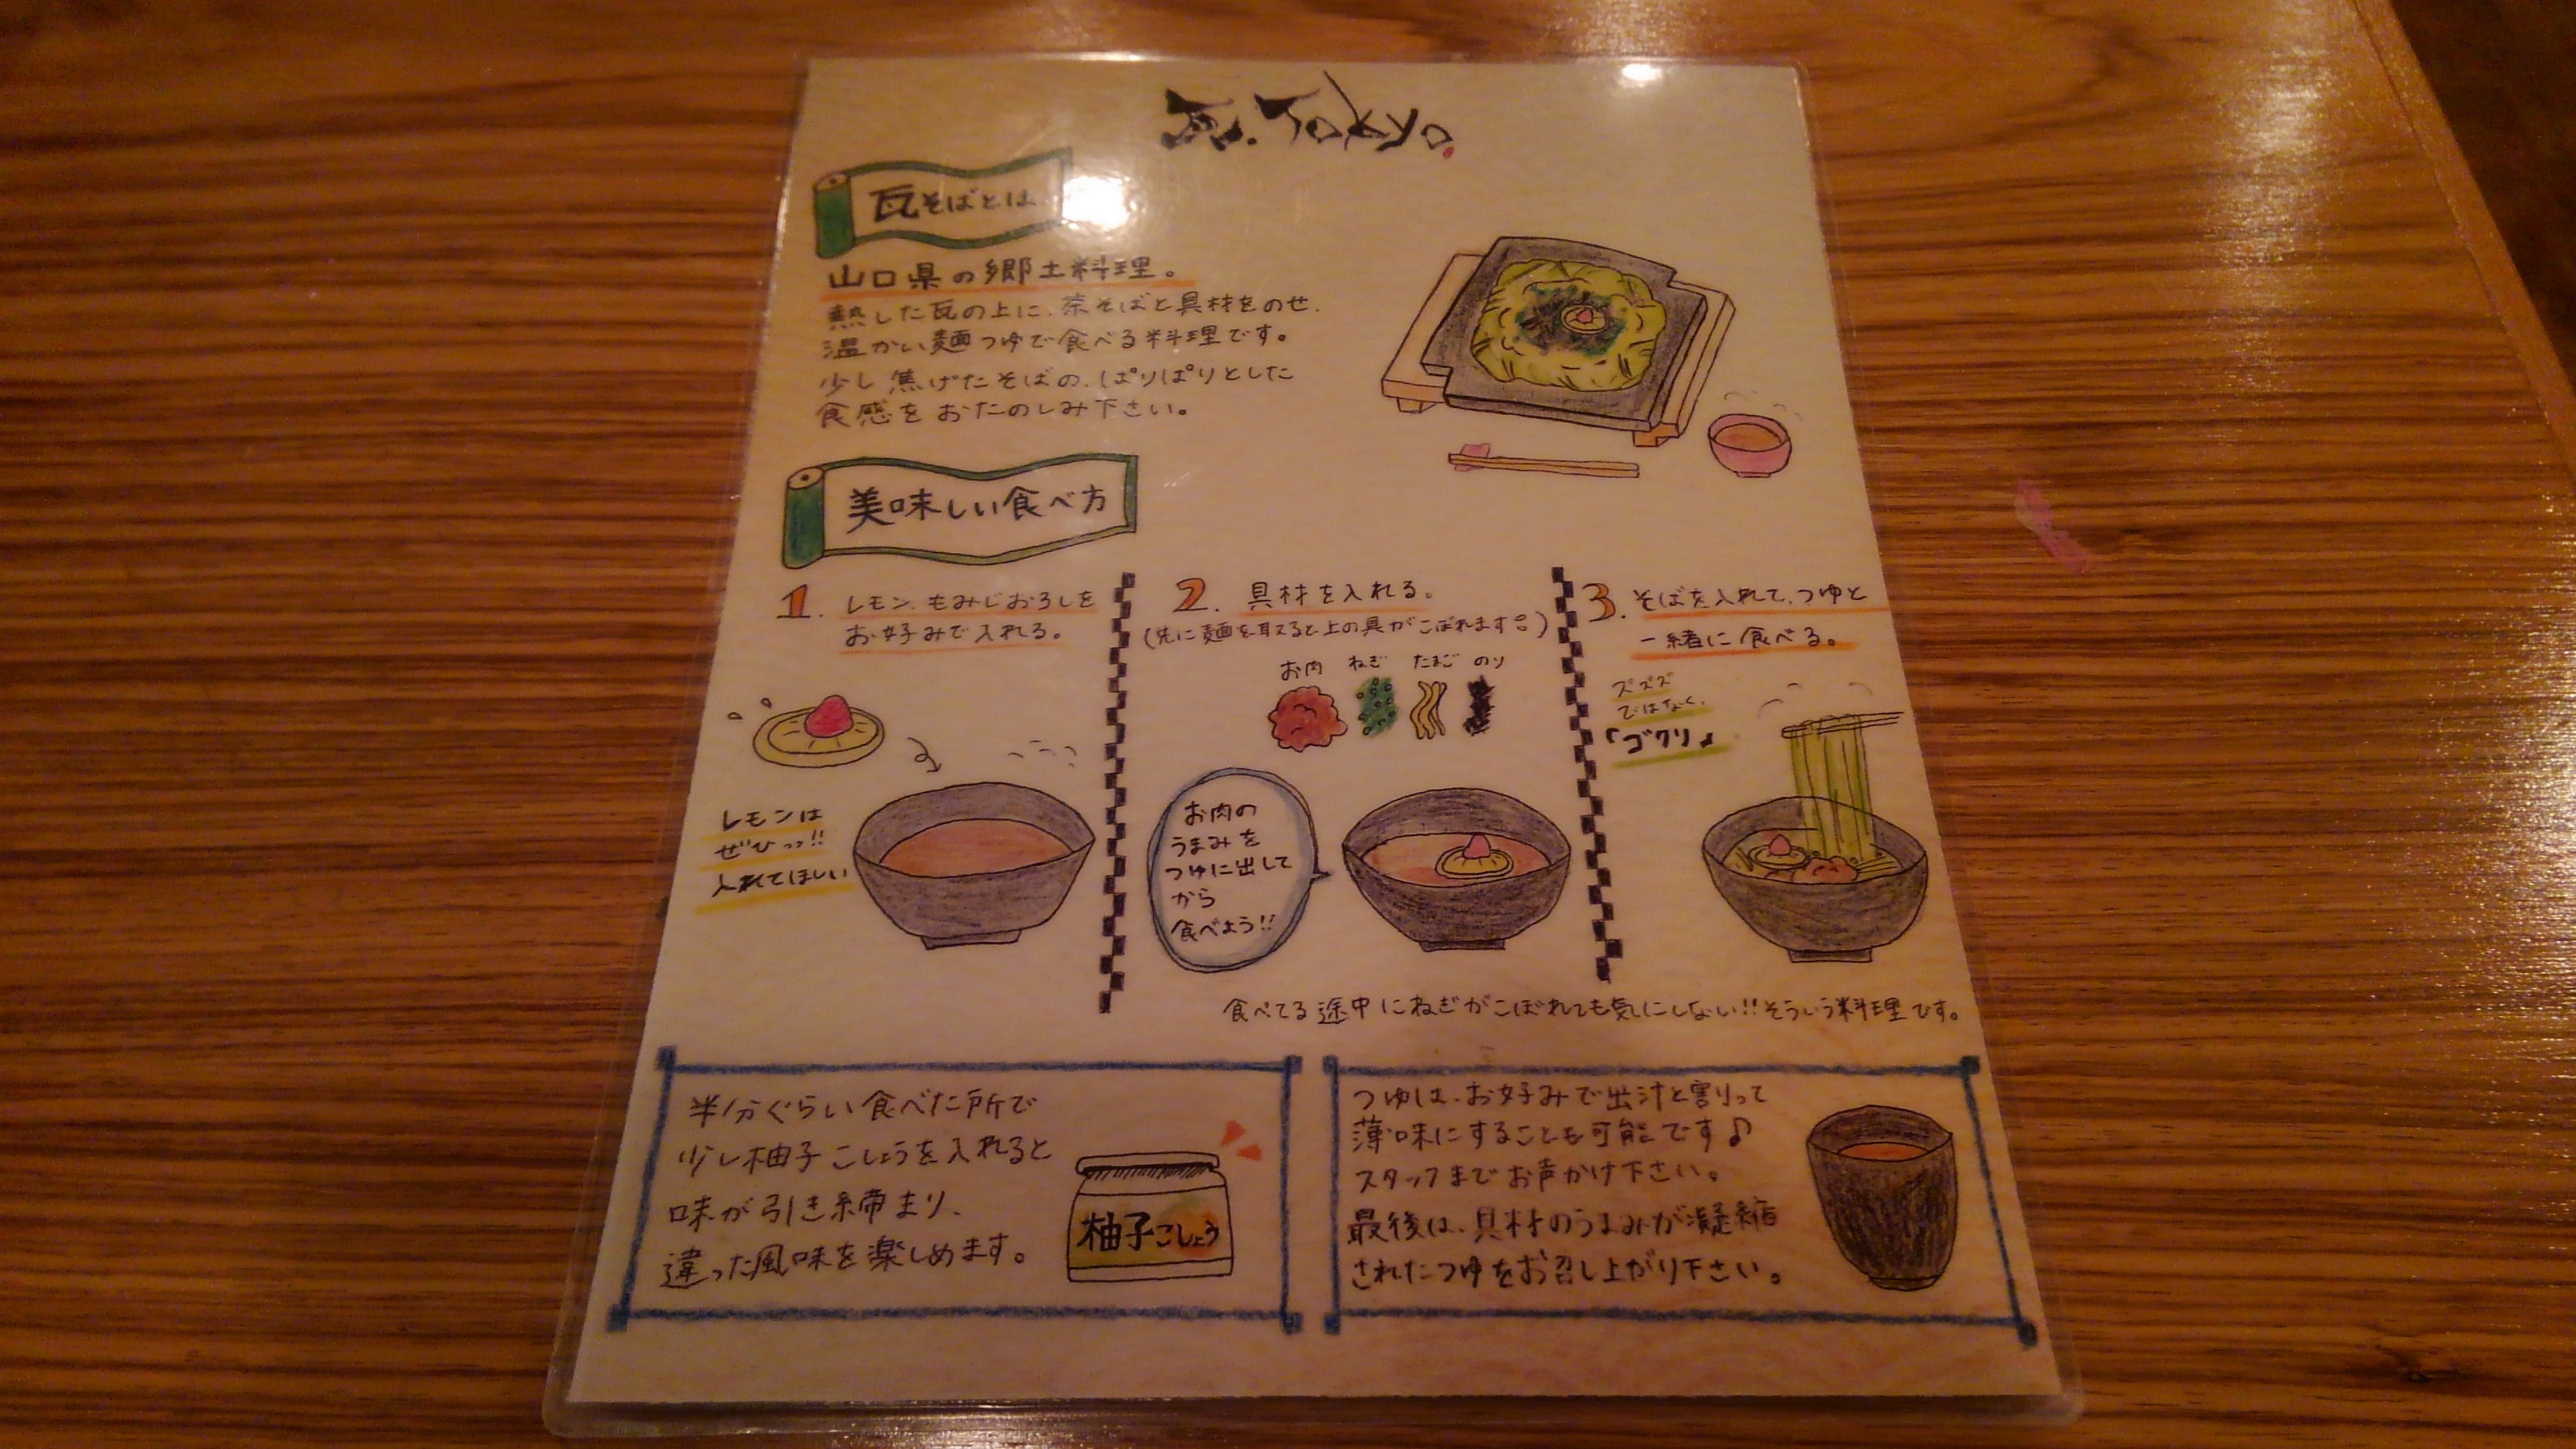 瓦.Tokyo.
瓦そばとは
山口県の郷土料理。
熱した瓦の上に、茶そばと具材をのせ、
温かい麺つゆで食べる料理です。
少し焦げたそばの、ぱりぱりとした
食感をおたのしみ下さい。
美味しい食べ方
1. レモン、もみじおろしを
お好みで入れる。
レモンは
ぜひっっ!!
入れてほしい
2. 具材を入れる。
(先に麺を取ると上の具がこぼれます。)
お肉 ねぎ たまご のり
お肉の
うまみを
つゆに出して
から
食べよう!!
3. そばを入れて、つゆと
一緒に食べる。
ズズズ
ではなく、
「ゴクリ」
食べてる途中にねぎがこぼれても気にしない!!そういう料理です。
半分ぐらい食べた所で
少し柚子こしょうを入れると
味が引き締まり、
違った風味を楽しめます。
柚子こしょう
つゆは、お好みで出汁と割って
薄味にすることも可能です♪
スタッフまでお声かけ下さい。
最後は、具材のうまみが凝縮
されたつゆをお召し上がり下さい。